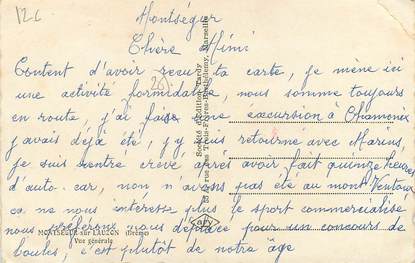 12€
Montségur
Chère Mimi
Content d'avoir reçu ta carte, je mène ici
une activité formidable, nous somme toujours
en route, j'ai fais une excursion à Chamonix
j'avais déjà été, j'y suis retourné avec Marius,
je suis rentré crevé après avoir fait quinze heures
d'auto-car, non n'avons pas été au mont Ventoux
ça ne nous interesse plus le sport commercialisé
nous préférons nous déplacé pour un concours de
boules, c'est plutôt de notre âge
MONTSEGUR-sur-LAUZON (Drôme)
Vue générale
Société d'Edition Tardy
Rue des Trois-Frères-Barthélemy, Marseille